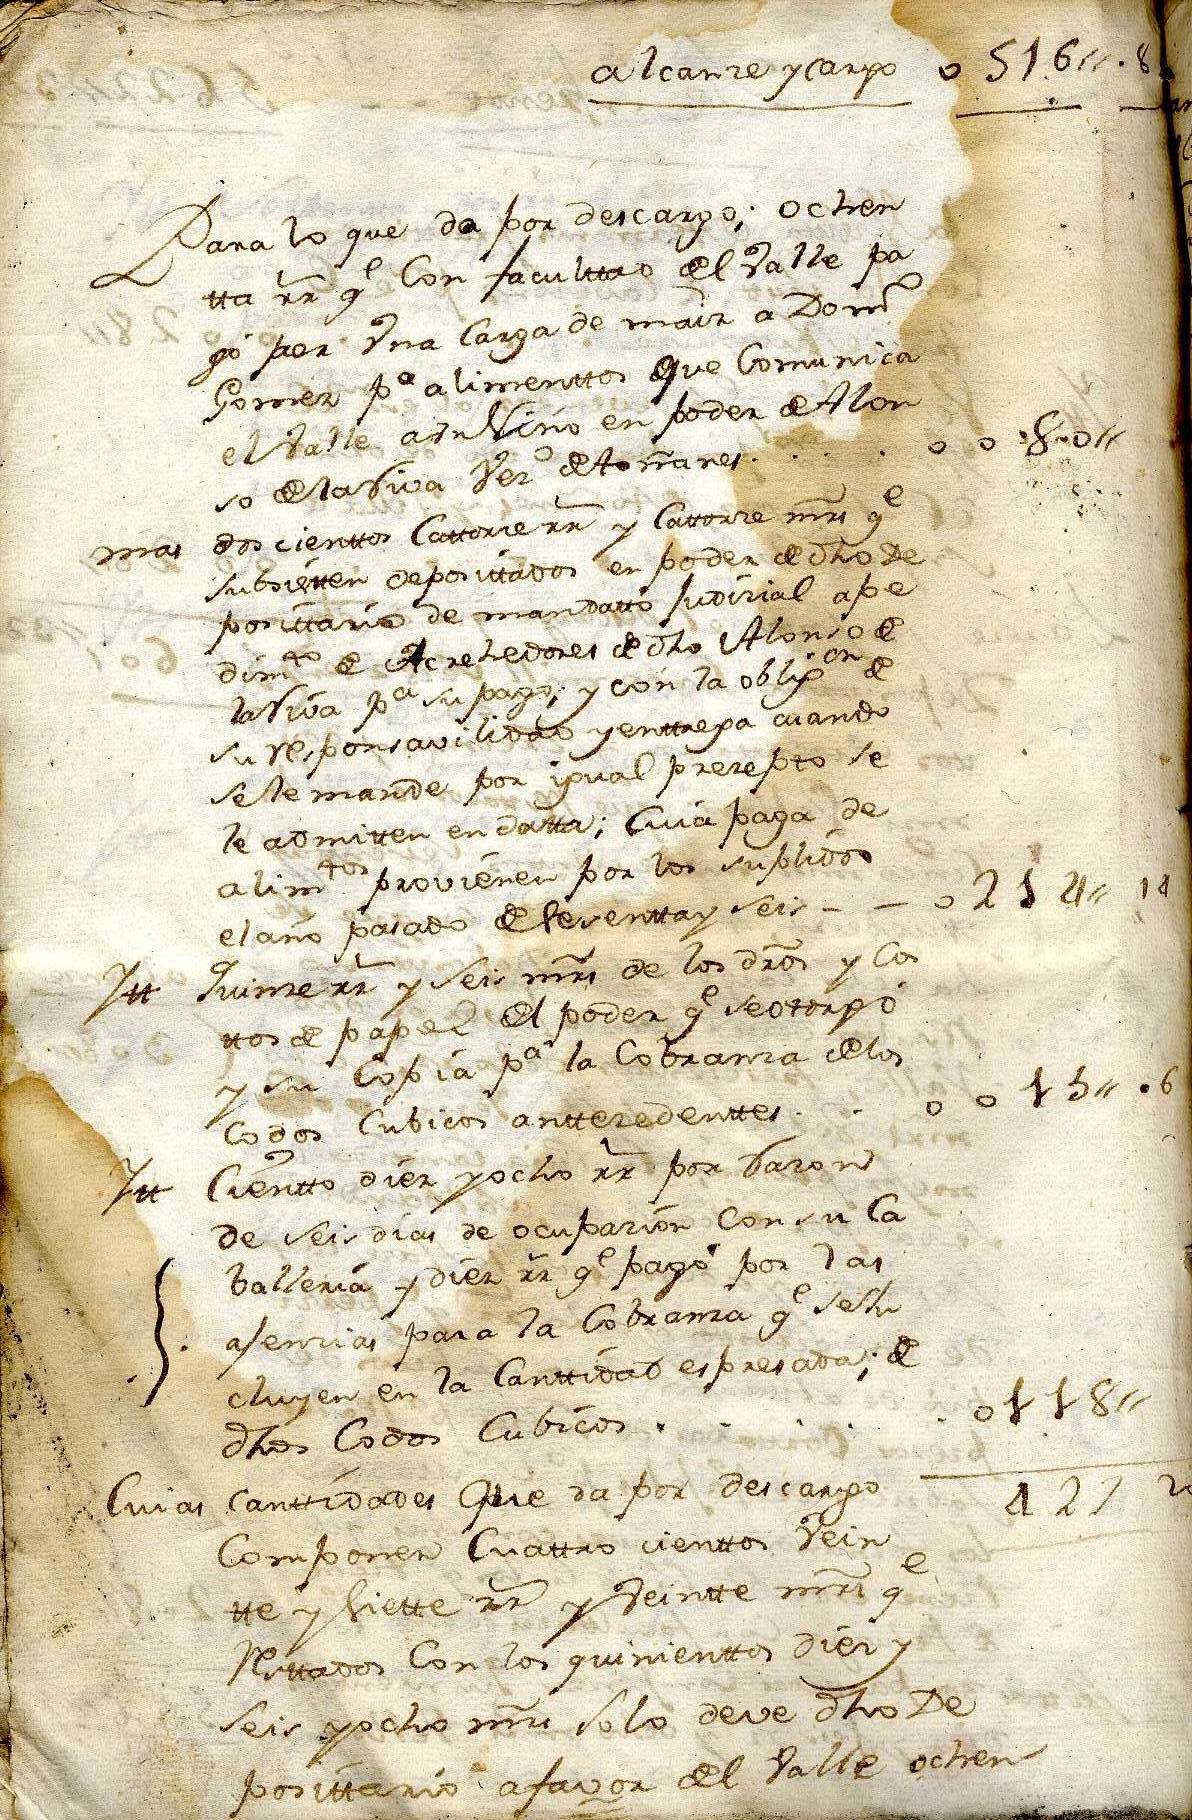 alcanze y Cargo 0 516 〃 . 8
Para lo que da por descargo; ochen
tta rr^s q^e Con facultta del Valle pa
gó por Vna Carga de maiz a Dom^o
Gomez p^a alimenttos que Comunica
el Valle a su Niño en poder de Alon
so de la Siva Vez^o de tomanes . . . . 0 0 80 〃
mas dos cienttos Cattorze rr^s y Cattorze mrs q^e
subsistten deposittados en poder de dho De
posittario de mandatto Judizial a pe
dim^to de Acrehedores de dho Alonso de
la Siva p^a su pago; y con la oblig^on de
su responsavilidad y enttrega cuando
se le mande por igual prezepto se
le admitten en datta; Cuia paga de
alim^tos provienen por los suplidos
el año pasado de sesentta y seis - - 0 214 〃 14
Ytt Quinze rr^s y seis mrs de los drõs y Cos
ttos de papel del poder q^e se otorgó
y su Copia p^a la Cobranza de los
Codos Cubicos anttezedenttes . . 0 0 15 〃 . 6
Ytt Cientto diez y ocho rr^s por Razon
de seis dias de ocupazion Con su Ca
balleria y diez rr^s q^e pagó por las
asenzias para la Cobranza q^e se In
cluyen en la Canttidad espresada; de
dhos Codos Cubicos . . . . . 0118 〃
Cuias Canttidades Que da por descargo 427 20
Componen Cuattro cienttos Vein
tte y siette rr^s y Veintte mrs q^e
Resttados Con los quinienttos diez y
seis y ocho mrs solo deve dho De
posittario a favor del Valle ochen